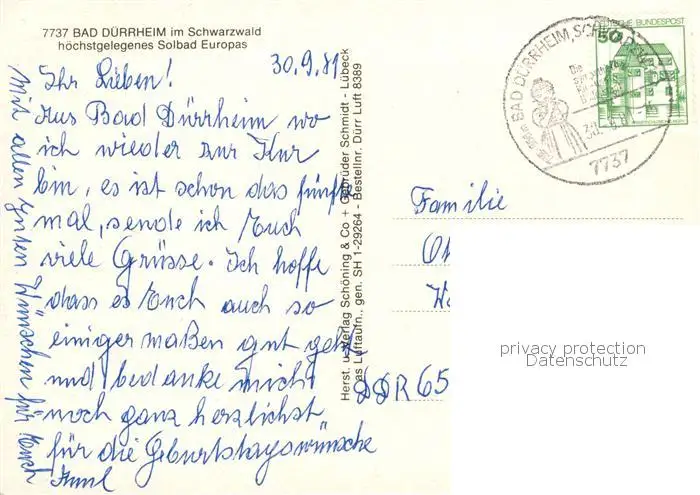 7737 BAD DÜRRHEIM im Schwarzwald
höchstgelegenes Solbad Europas
30.9.81
Ihr Lieben!
Aus Bad Dürrheim wo
ich wieder zur Kur
bin, es ist schon das fünfte
mal, sende ich Euch
viele Grüsse. Ich hoffe
dass es Euch auch so
einiger maßen gut geht
und bedanke mich
noch ganz herzlichst
für die Geburtstagswünsche
Mit allen guten Wünschen für Euch
Herst. u. Verlag Schöning & Co + Gebrüder Schmidt - Lübeck
as Luftaufn., gen. SH 1-29264 - Bestellnr. Dürr Luft 8389
50
DEUTSCHE BUNDESPOST
BAD DÜRRHEIM
7737
Familie
DDR 65
privacy protection
Datenschutz